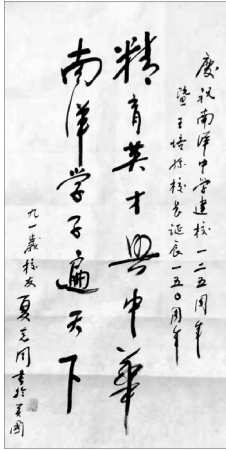 慶祝南洋中学建校一二五周年
暨王培孫校长诞辰一五〇周年
精育英才興中華
南洋学子遍天下
九一歲校友夏克同書於美國